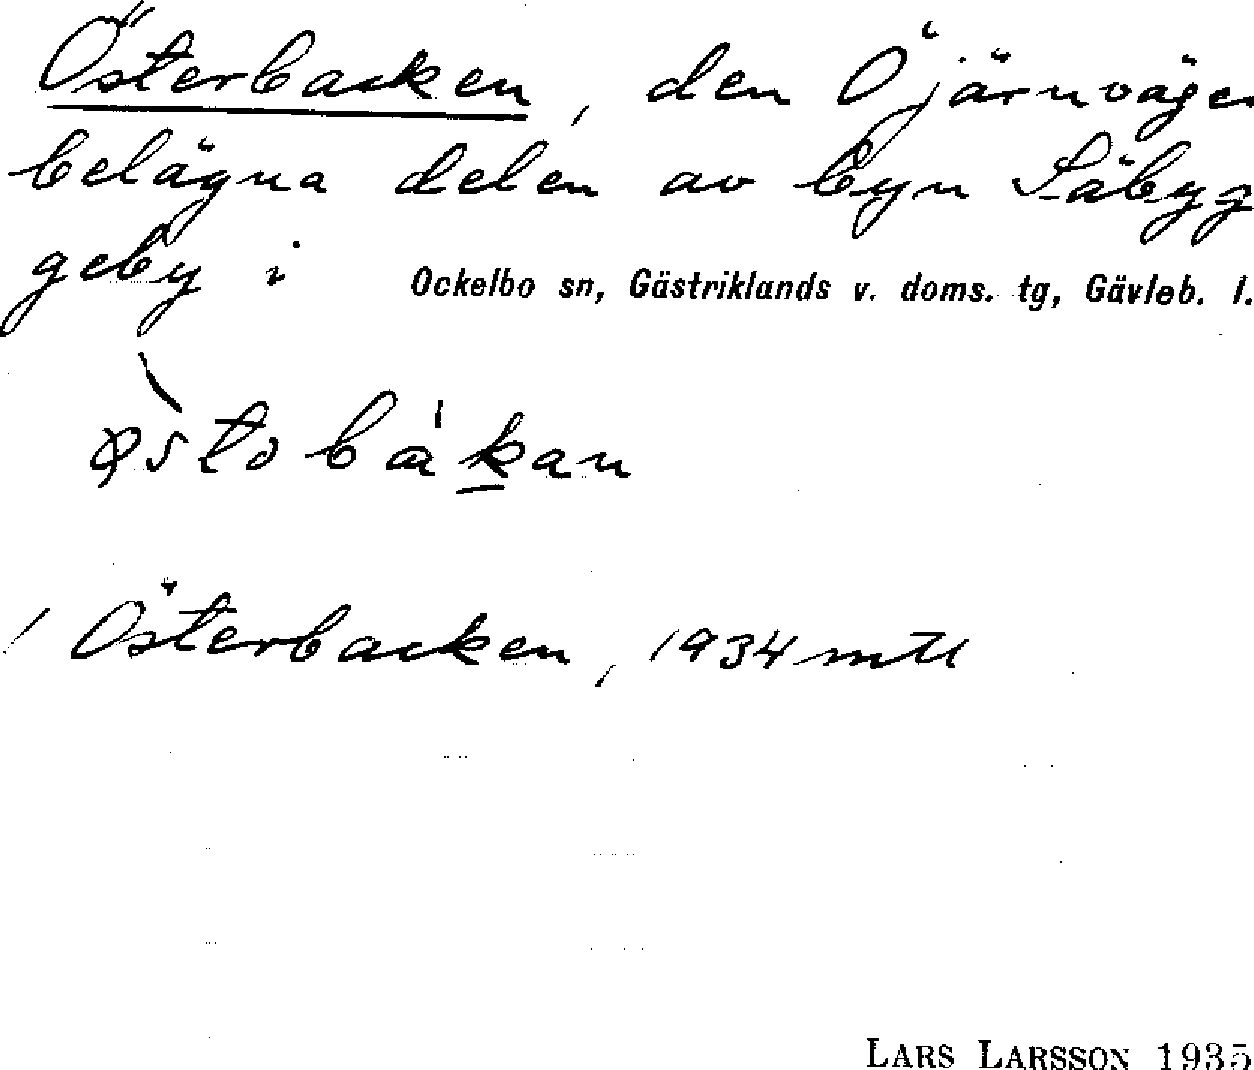 Österbacken, den Ö järnvägen
belägna delen av byn Säbyg
geby i Ockelbo sn, Gästriklands v. doms. tg, Gävleb. l.
Österbacken, 1934 mtl
LARS LARSSON 1935